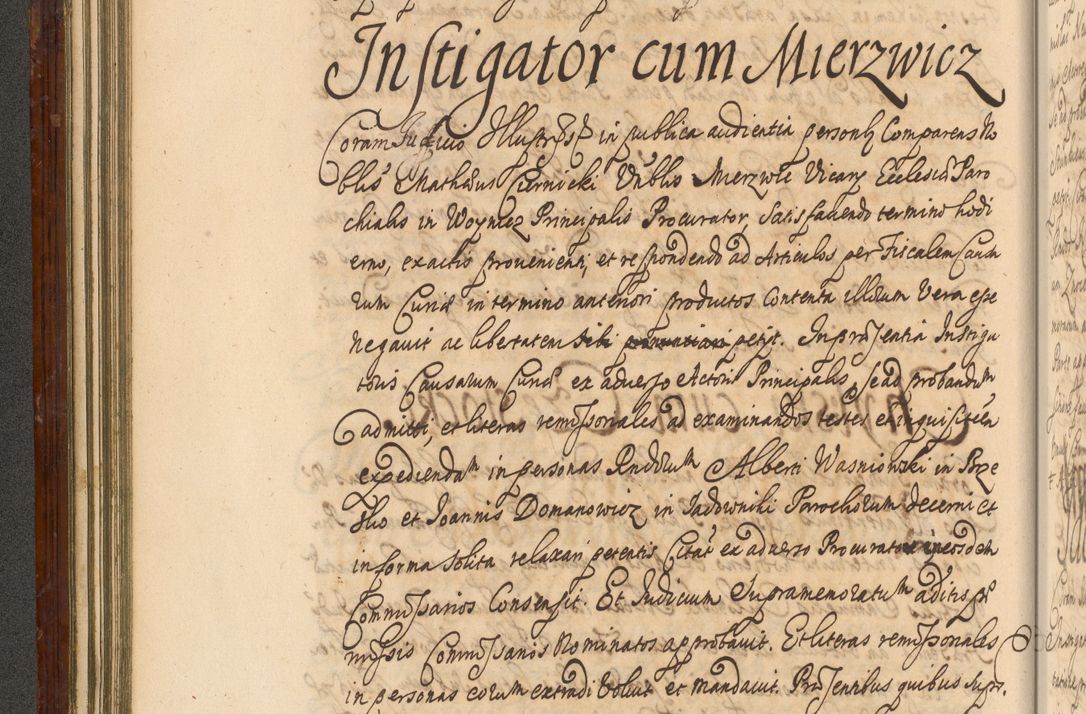 Instigator cum Mierzwicz
Coram Judicio Illustris in publica audientia personlr Comparens No
blis Mathæus Ciernicki Vnblis Mierzwic Vicary Ecclesiæ Paro
chialis in Woynicz Principalis Procurator, Satisfaciendo termino hodi
erno, ex actis provenienti, et respondendo ad Articulos per Fiscalem Caus
rum Curiæ in termino anteriori productos Contenta illorum Vera esse
negavit ac libertatem sibi petijt. In præsentia Instiga
toris Causarum Curiæ ex adverso Actori Principalis, se ad probandum
admitti, et literas remissoriales ad examinandos testes et inquisitiem
expediendam in personas Rndorum Alberti Wasniowski in Brze
sko et Joannis Domanowicz in Jadowniki Parochorum decerni et
in forma solita relaxari petentis Citati ex adverso Procurator in eosdem
Commissarios Consensit. Et Judicium Supramemoratum aditis præ
missis Commissarios Nominatos approbavit. Et literas remissoriales
in personas eorum extradi Voluit et mandavit. Præsentibus quibus Supr.